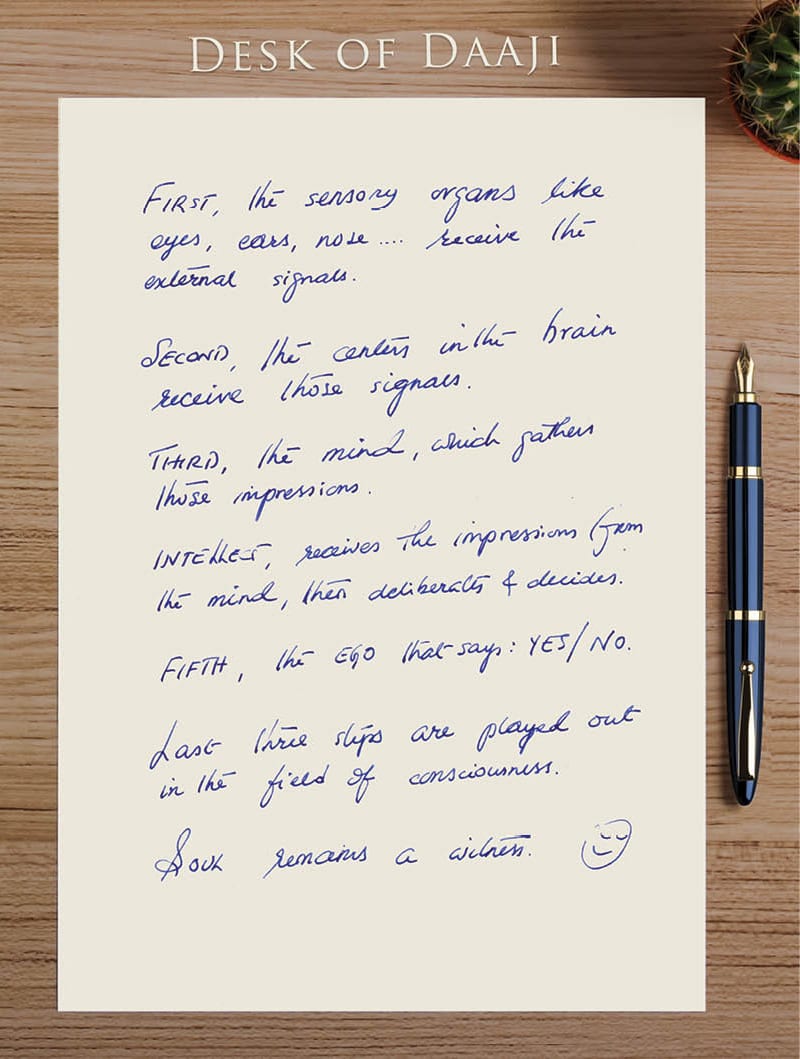 DESK OF DAAJI
FIRST, the sensory organs like
eyes, ears, nose .... receive the
external signals.
SECOND, the centers in the brain
receive those signals.
THIRD, the mind, which gathers
those impressions.
INTELLECT, receives the impressions from
the mind, then deliberates & decides.
FIFTH, the EGO that says: YES/NO.
Last three steps are played out
in the field of consciousness.
Soul remains a witness.